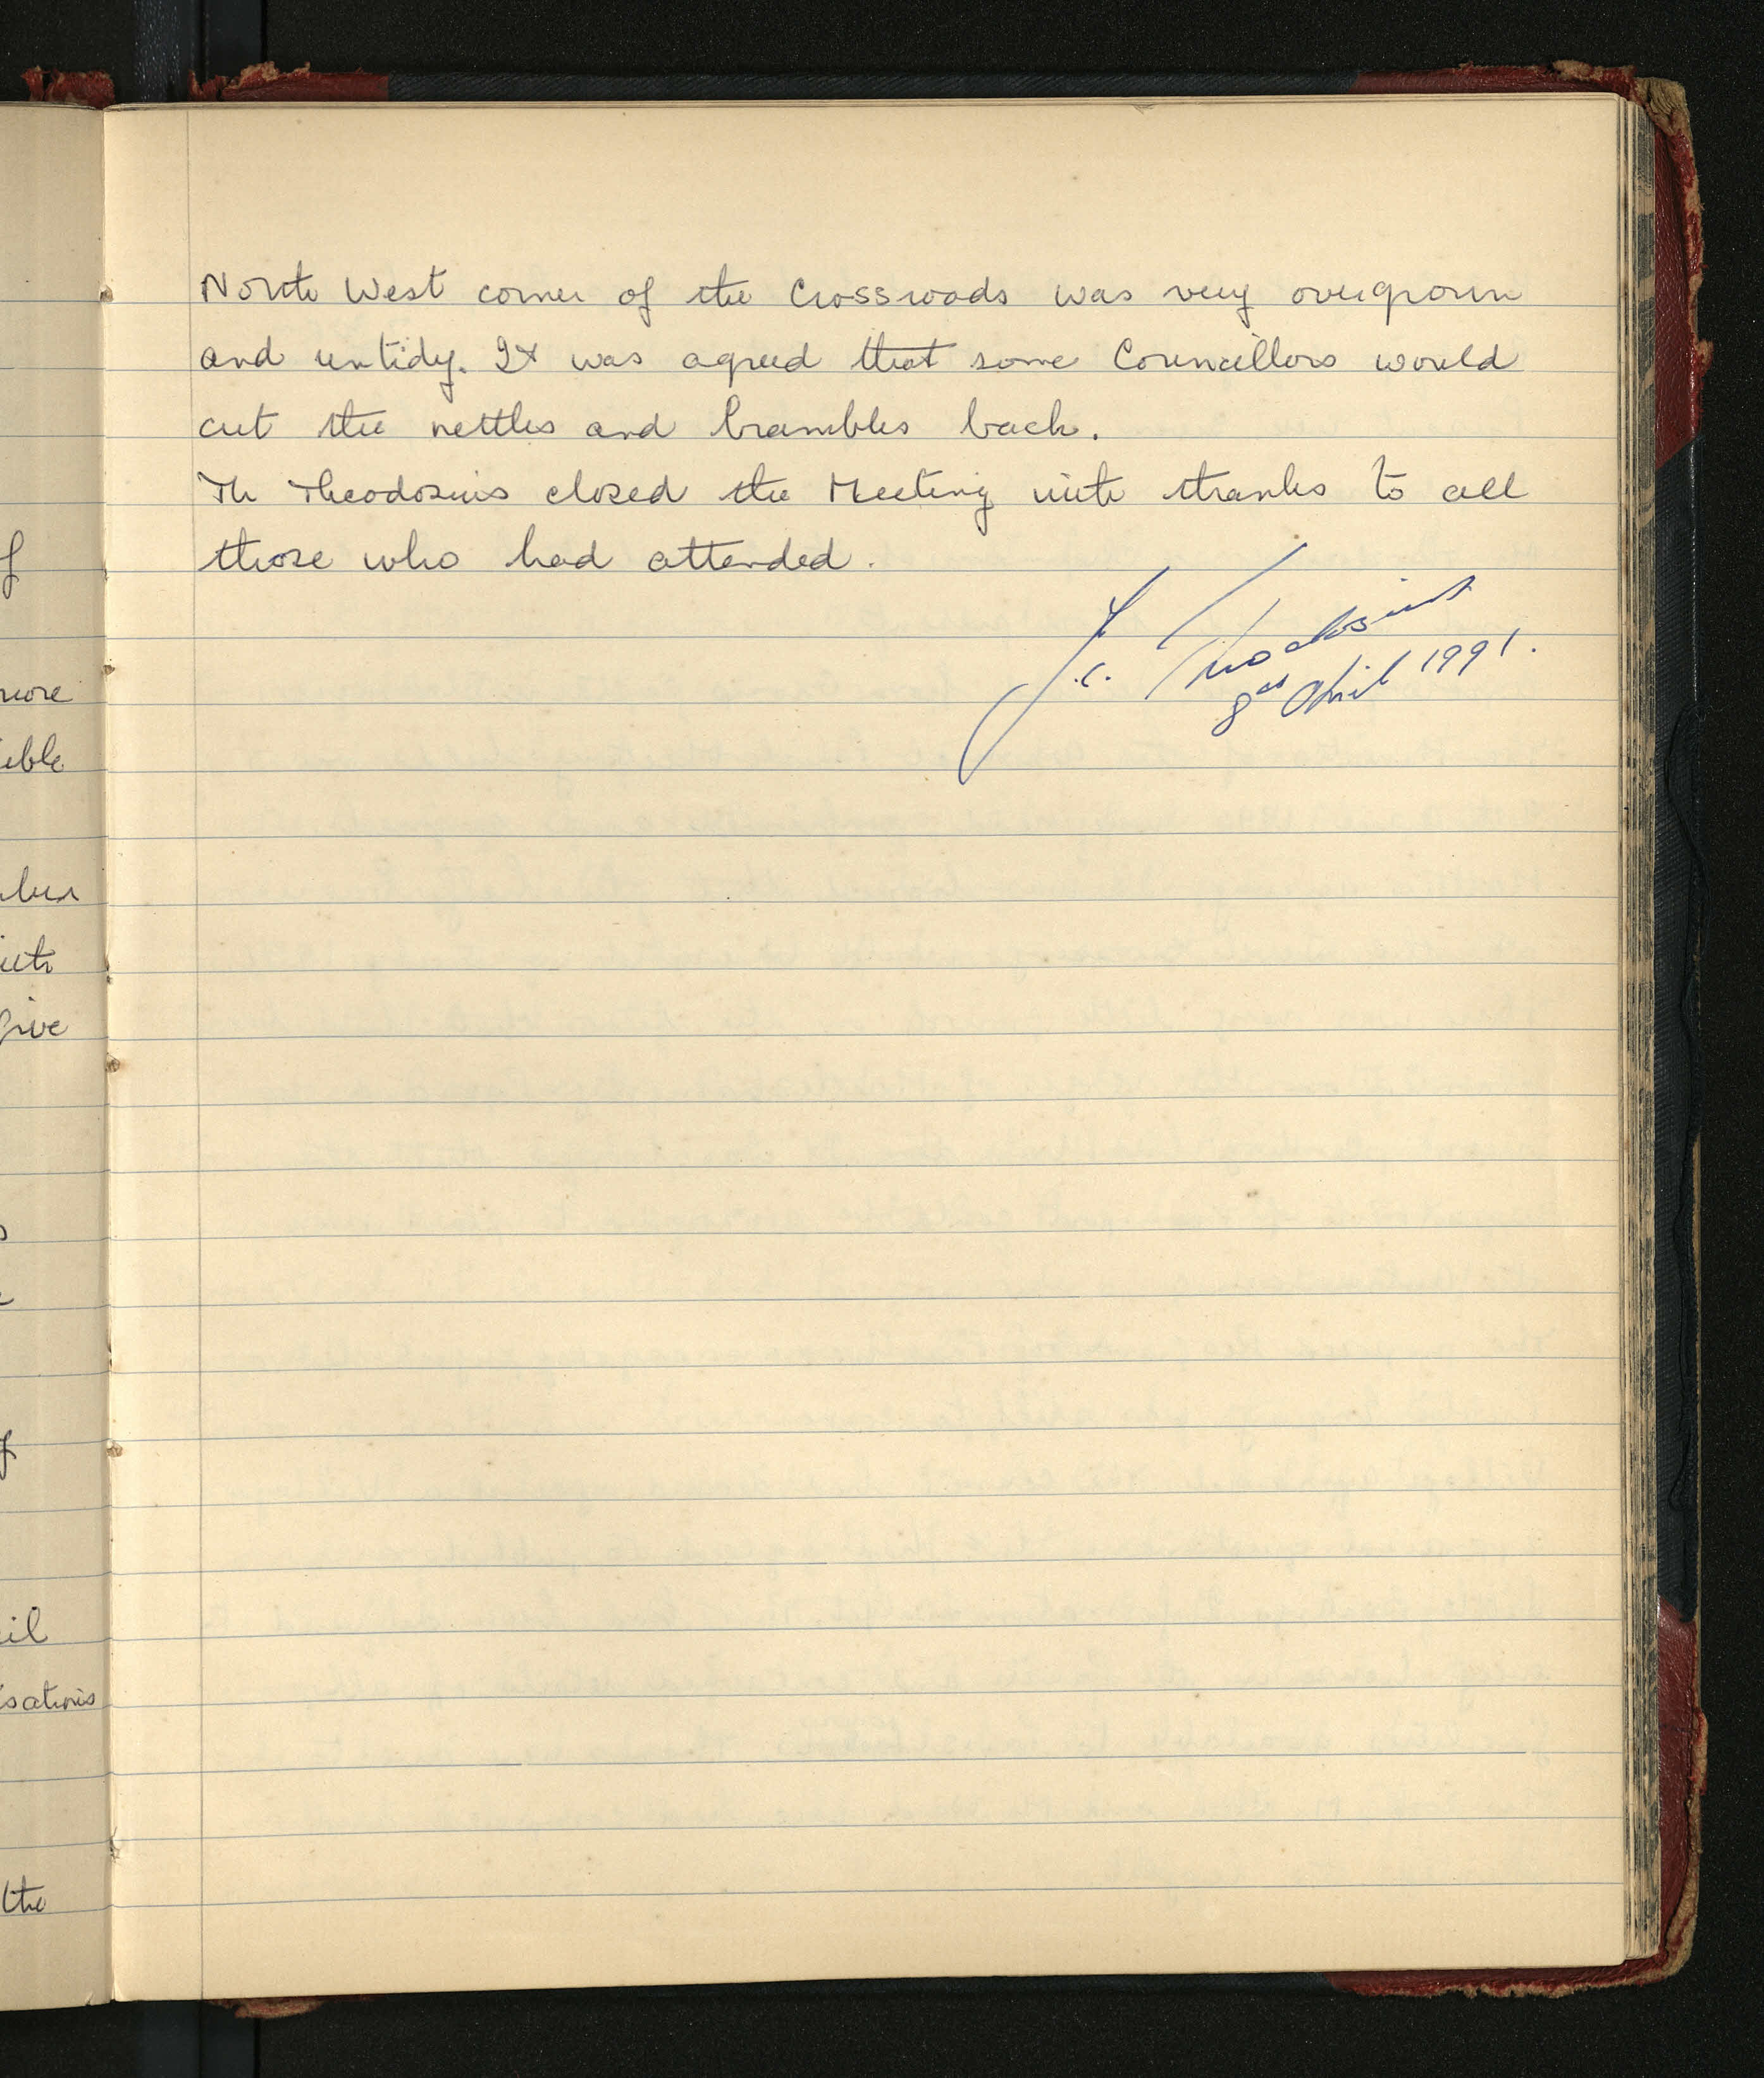 f
more
ible
with
give
il
isations
the
North West corner of the Crossroads was very overgrown
and untidy. It was agreed that some Councillors would
cut the nettles and brambles back.
Mr Theodosius closed the Meeting with thanks to all
those who had attended.
J.C. Theodosius
8th April 1991.